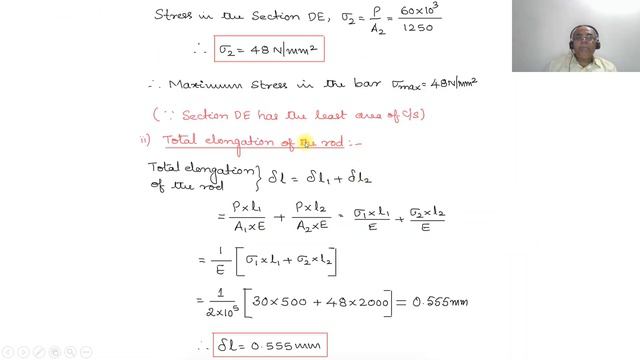 Stress in the Section DE, σ₂ = P/A₂ = 60×10³/1250
∴ σ₂ = 48 N/mm²
∴ Maximum Stress in the bar σmax = 48 N/mm²
(∵ Section DE has the least area of c/s)
ii) Total elongation of the rod :-
Total elongation of the rod } δl = δl₁ + δl₂
= P×l₁/A₁×E + P×l₂/A₂×E = σ₁×l₁/E + σ₂×l₂/E
= 1/E [σ₁×l₁ + σ₂×l₂]
= 1/2×10⁵ [30×500 + 48×2000] = 0.555mm
∴ δl = 0.555mm